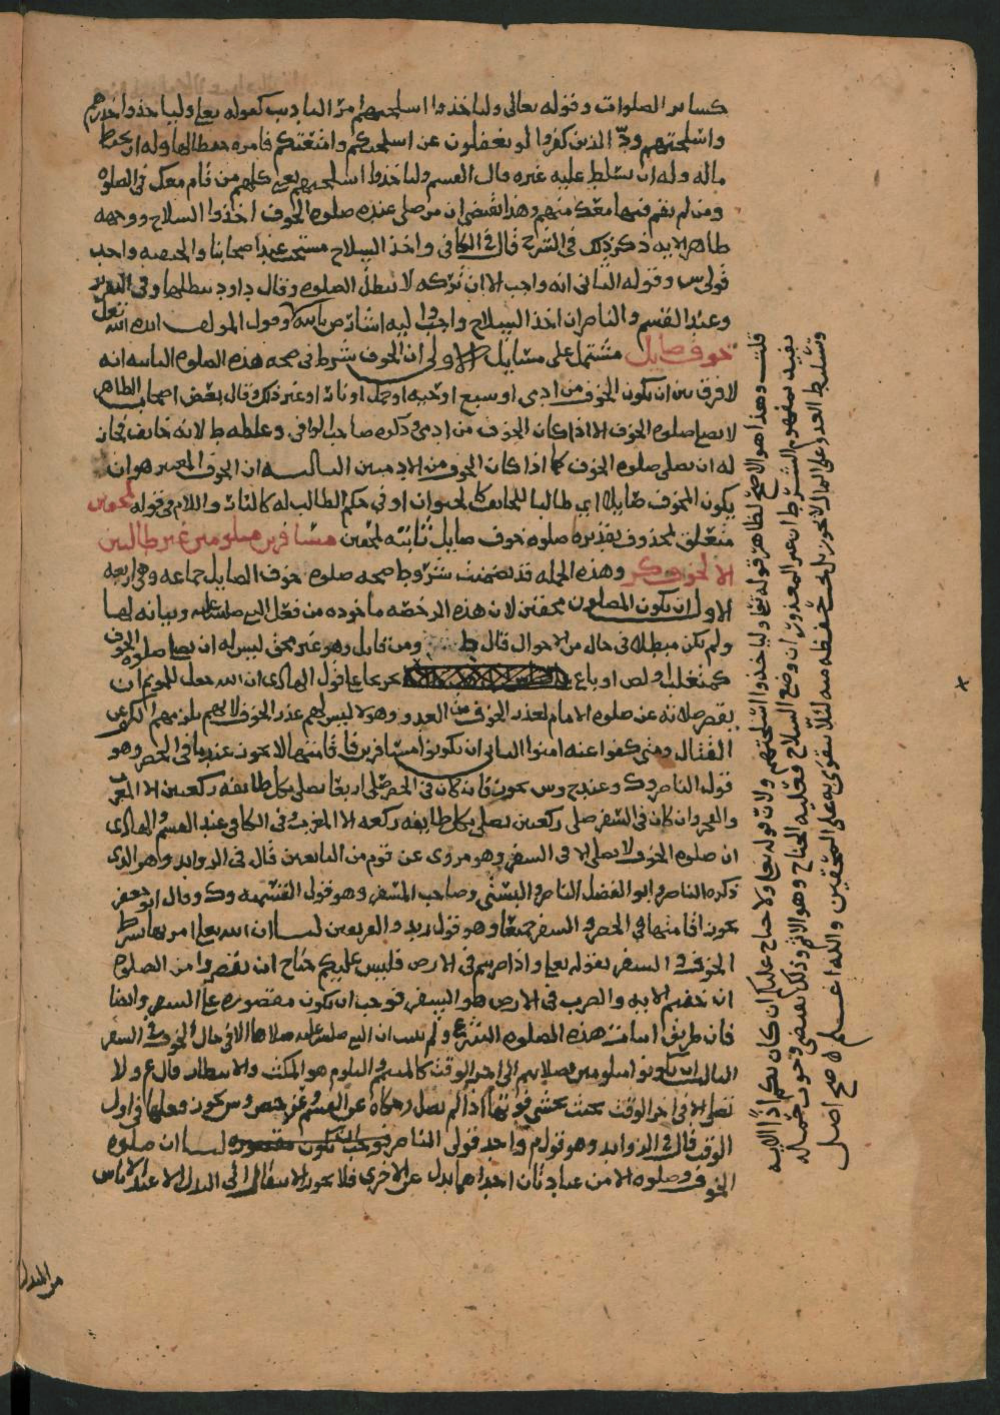 كسائر الصلوات وقوله تعالى ولياخذوا اسلحتهم من التاديب كقوله تعالى ولياخذوا حذرهم
واسلحتهم ودّ الذين كفروا لو تغفلون عن اسلحتكم وامتعتكم فامره بحفظ الماله وله ان يحفظ
ماله وله ان يتسلط عليه غيره قال القسم ولياخذوا اسلحتهم يعني كلهم من قام معك في الصلوه
ومن لم يقم فيها معك منهم وهذا يقتضي ان من صلى عنده صلوه الخوف اخذوا السلاح ووجهه
ظاهر الايه ذكر ذلك في الشرح قال في الكافي واخذ السلاح مستحب عند اصحابنا والحنفيه واحد
قولي س وقوله الثاني انه واجب الا ان تركه لا يبطل الصلوه وقال داود يبطلها وفي التقرير
وعند القسم والناصر ان اخذ السلاح واجب واليه اشار ص بالله وقول المولف ايده الله تعالى
خوف صايل مشتمل على مسايل الاولى ان الخوف شرط في صحه هذه الصلوه الثانيه انه
لا فرق بين ان يكون الخوف من ادمي او سبع او حيه او جمل او نار او غير ذلك وقال بعض اصحاب الظاهر
لا يصح صلوه الخوف الا اذا كان الخوف من ادمي وذكره صاحب الوافي وغلطه ط لانه خايف فجاز
له ان يصلي صلوه الخوف كما اذا كان الخوف من الادميين الثالثه ان الخوف المعتبر هو ان
يكون المخوف صايلا اي طالبا للخايف كالحيوان او في حكم الطالب له كالنار واللام في قوله لمحقين
متعلق بمحذوف تقديره صلوه خوف صايل ثابته لمحقين مسافرين مسلومين غير طالبين
الا لخوف كر وهذه الجمله قد تضمنت شروط صحه صلوه خوف الصايل جماعه وهي اربعه
الاول ان يكون المصلون محقين لان هذه الرخصه ماخوذه من فعل النبي صلى الله عليه وبيانه لها
ولم يكن مبطلا في حال من الاحوال قال ط ومن قاتل وهو غير محق ليس له ان يصلي صلوه الخوف
كمتغلب او لص او باغ تخريجا على قول الهادي ان الله جعل للمومن ان
يقصر صلاته عن صلوه الامام لعذر الخوف من العدو وهولا ليس لهم عذر الخوف لانهم يلزمهم الكف عن
القتال ومتى كفوا عنه امنوا الثاني ان يكونوا مسافرين فاقامتها لا يجوز عندنا في الحضر وهو
قول الناصر وك وعند ح وس يجوز فان كان في الحضر صلى اربعا يصلي بكل طايفه ركعتين الا المغرب
والفجر وان كان في السفر صلى ركعتين يصلي بكل طايفه ركعه الا المغرب وفي الكافي عند القسم والهادي
ان صلوه الخوف لا يصلي الا في السفر وهو مروي عن قوم من التابعين قال في الزوايد وهو الذي
ذكره الناصر وابو الفضل الناصر والبستي وصاحب المسفر وهو قول القسميه وك وقال ابو جعفر
يجوز اقامتها في الحضر والسفر جميعا وهو قول زيد والفريقين لنا ان الله تعالى امر بها بشرط
الخوف والسفر بقوله تعالى واذا ضربتم في الارض فليس عليكم جناح ان تقصروا من الصلوه
ان خفتم الايه والضرب في الارض هو السفر فوجب ان يكون مقصوره على السفر وايضا
فان طريق اثبات هذه الصلوه الشرع ولم يثبت ان النبي صلى الله عليه صلاها الا في حال الخوف في السفر
الثالث ان يكونوا مسلومين بصلاتهم الى اخر الوقت كالمتيمم والتلوم هو المكث والانتظار قال ع ولا
تصلى الا في اخر الوقت بحيث يخشى فوتها اذا لم تصل وحكاه عن القسم وعن ح ص وس يجوز فعلها في اول
الوقت قال في الزوايد وهو قول م واحد قولي الناصر لنا ان صلوه
الخوف وصلوه الامن عبادتان احداهما بدل عن الاخرى فلا يجوز الانتقال الى البدل الا عند الاياس
من المبدل
قلت وهذا هو الاصح لظاهر قوله تعالى ولياخذوا اسلحتهم ولان قوله تعالى ولا جناح عليكم ان كان بكم اذى الايه
يفيد بمفهوم الشرط ان غير المعذور ان وضع السلاح فعليه الجناح وهو الاثم وذلك يقتضي وجوب حمله
وتسليط العدو على المال لا يجوز بل يجب حفظه منه لئلا يتقوى به على المحقين والله اعلم لا صح اصل